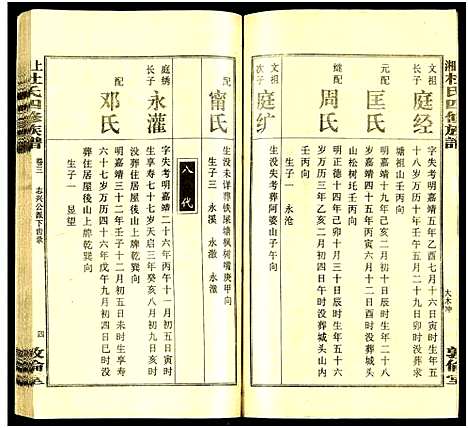 湘杜氏四修族譜
文祖
長子
庭经
字失考明嘉靖五年乙酉七月十六日寅时生年五
十八岁万历十年壬午十二月十九日戌时没葬
塘祖山壬丙向
元配
匡氏
明嘉靖十九年己亥二月初二日戌时生年五十
六岁万历四十五年丙寅六月十三日酉时没葬城头
山松树圫壬丙向
继配
周氏
明正德十四年四月十三日辰时生年五十
岁万历三年乙亥二月初九日巳时没葬城头山内
壬丙向
生子一 永沧
文祖
次子
庭纩
生没失考葬阿婆山子午向
大木冲
敦倫堂
上杜氏四修族譜
卷三
志兴公派下齿录
配
甯氏
生没未详葬铁屎塘枫树嘴庚甲向
生子三 永溪 永澈 永潅
八代
庭绣
长子
永潅
字失考明嘉靖二十六年丙午十一月初五日寅时
生享寿七十七岁天启三年癸亥八月初九日亥时
没葬住居屋后山上牌乾巽向
配
邓氏
明嘉靖三十二年壬子十二月初五日未时生享寿
六十七岁万历四十六年戊午九月初四日巳时没
葬住居屋后山上牌乾巽向
生子一 显望
四
敦倫堂